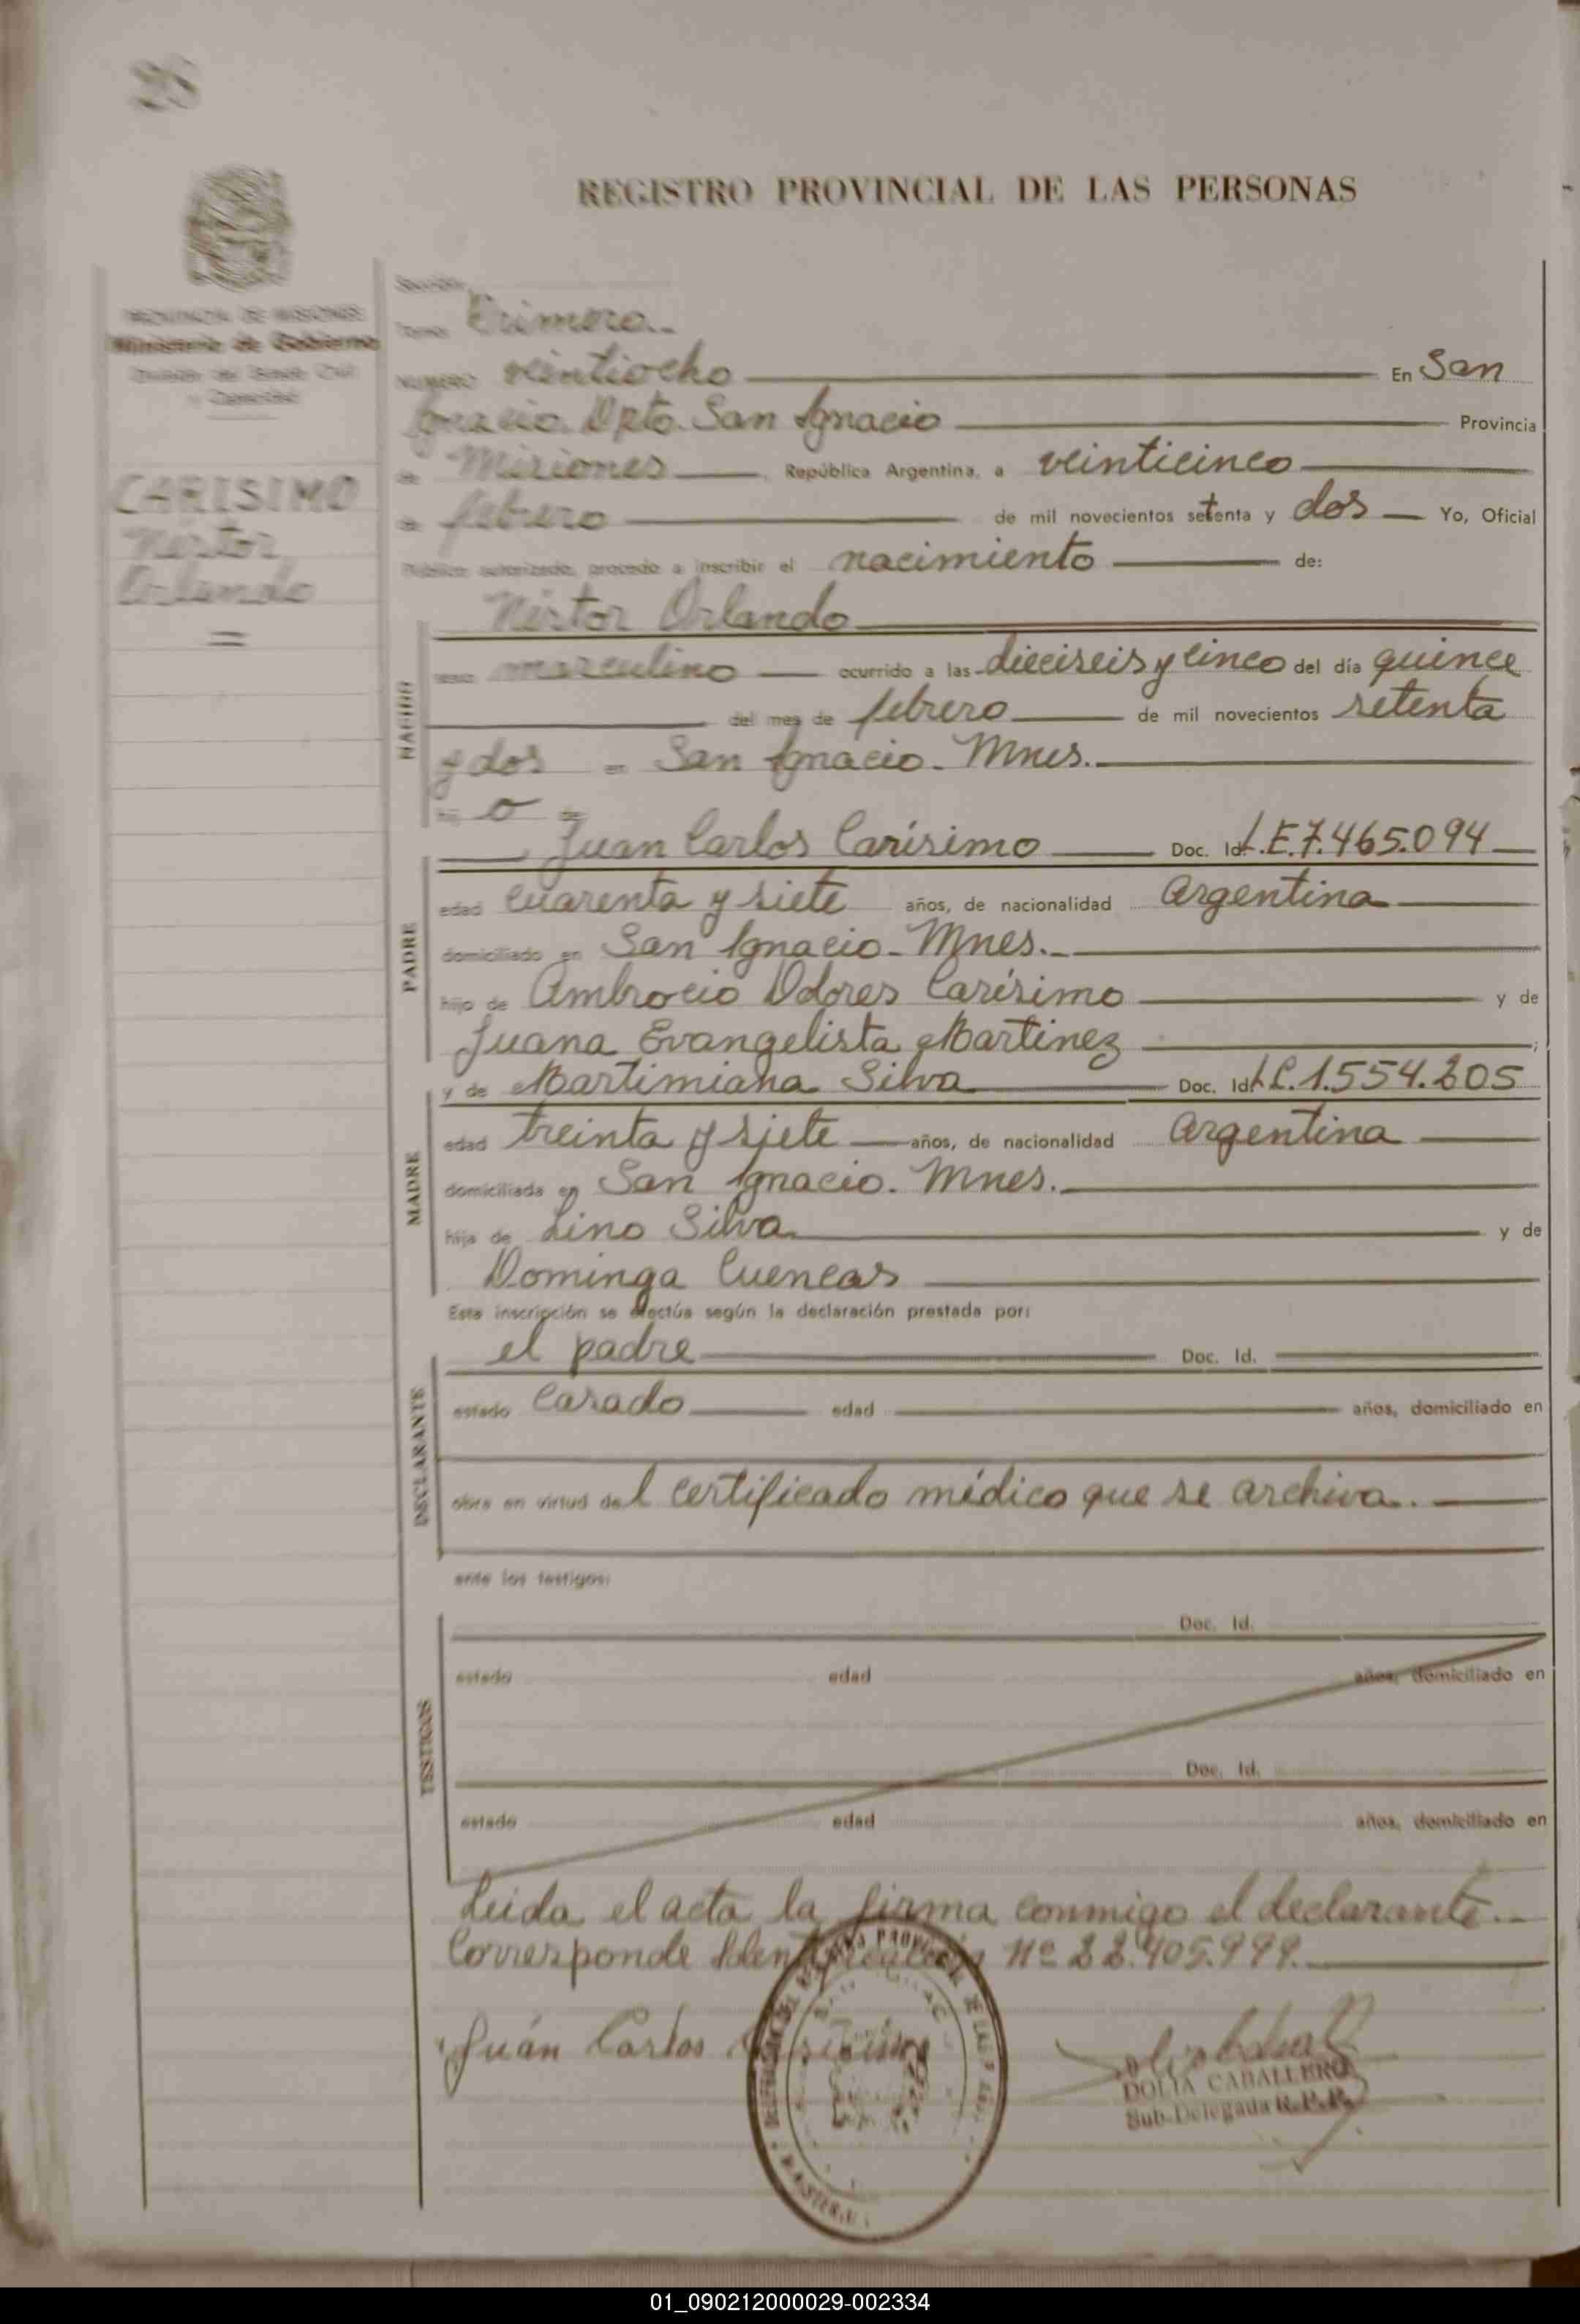 28
REGISTRO PROVINCIAL DE LAS PERSONAS
PROVINCIA DE MISIONES
Ministerio de Gobierno
CARISIMO
Néstor
Orlando
=
Sección
Tomo Primero.-
NUMERO veintiocho En San
Ignacio. Dpto. San Ignacio Provincia
de Misiones, República Argentina, a veinticinco
de febrero de mil novecientos setenta y dos Yo, Oficial
Público autorizado, procedo a inscribir el nacimiento de:
Néstor Orlando
NACIDO
sexo masculino ocurrido a las dieciseis y cinco del día quince
del mes de febrero de mil novecientos setenta
y dos en San Ignacio - Mnes.
hij o de
Juan Carlos Carísimo Doc. Id. L.E.7.465.094
PADRE
edad cuarenta y siete años, de nacionalidad Argentina
domiciliado en San Ignacio - Mnes.
hijo de Ambrocio Dolores Carísimo y de
Juana Evangelista Martinez ;
y de Martimiana Silva Doc. Id. L.C.1.554.205
MADRE
edad treinta y siete años, de nacionalidad Argentina
domiciliada en San Ignacio. Mnes.
hija de Lino Silva y de
Dominga Cuencas
Esta inscripción se efectúa según la declaración prestada por:
el padre Doc. Id.
DECLARANTE
estado Casado edad años, domiciliado en
obra en virtud del certificado médico que se archiva.
ante los testigos:
TESTIGOS
Doc. Id.
estado edad años, domiciliado en
Doc. Id.
estado edad años, domiciliado en
Leida el acta la firma conmigo el declarante.-
Corresponde Identificación Nº 22.405.999.
Juán Carlos Carísimo
DOLIA CABALLERO
Sub-Delegada R.P.P.
01_090212000029-002334